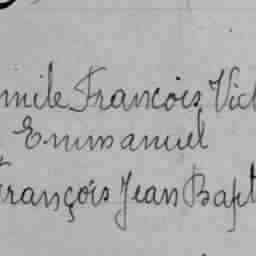 mile Francois Vict
Emmanuel
François Jean Bapt